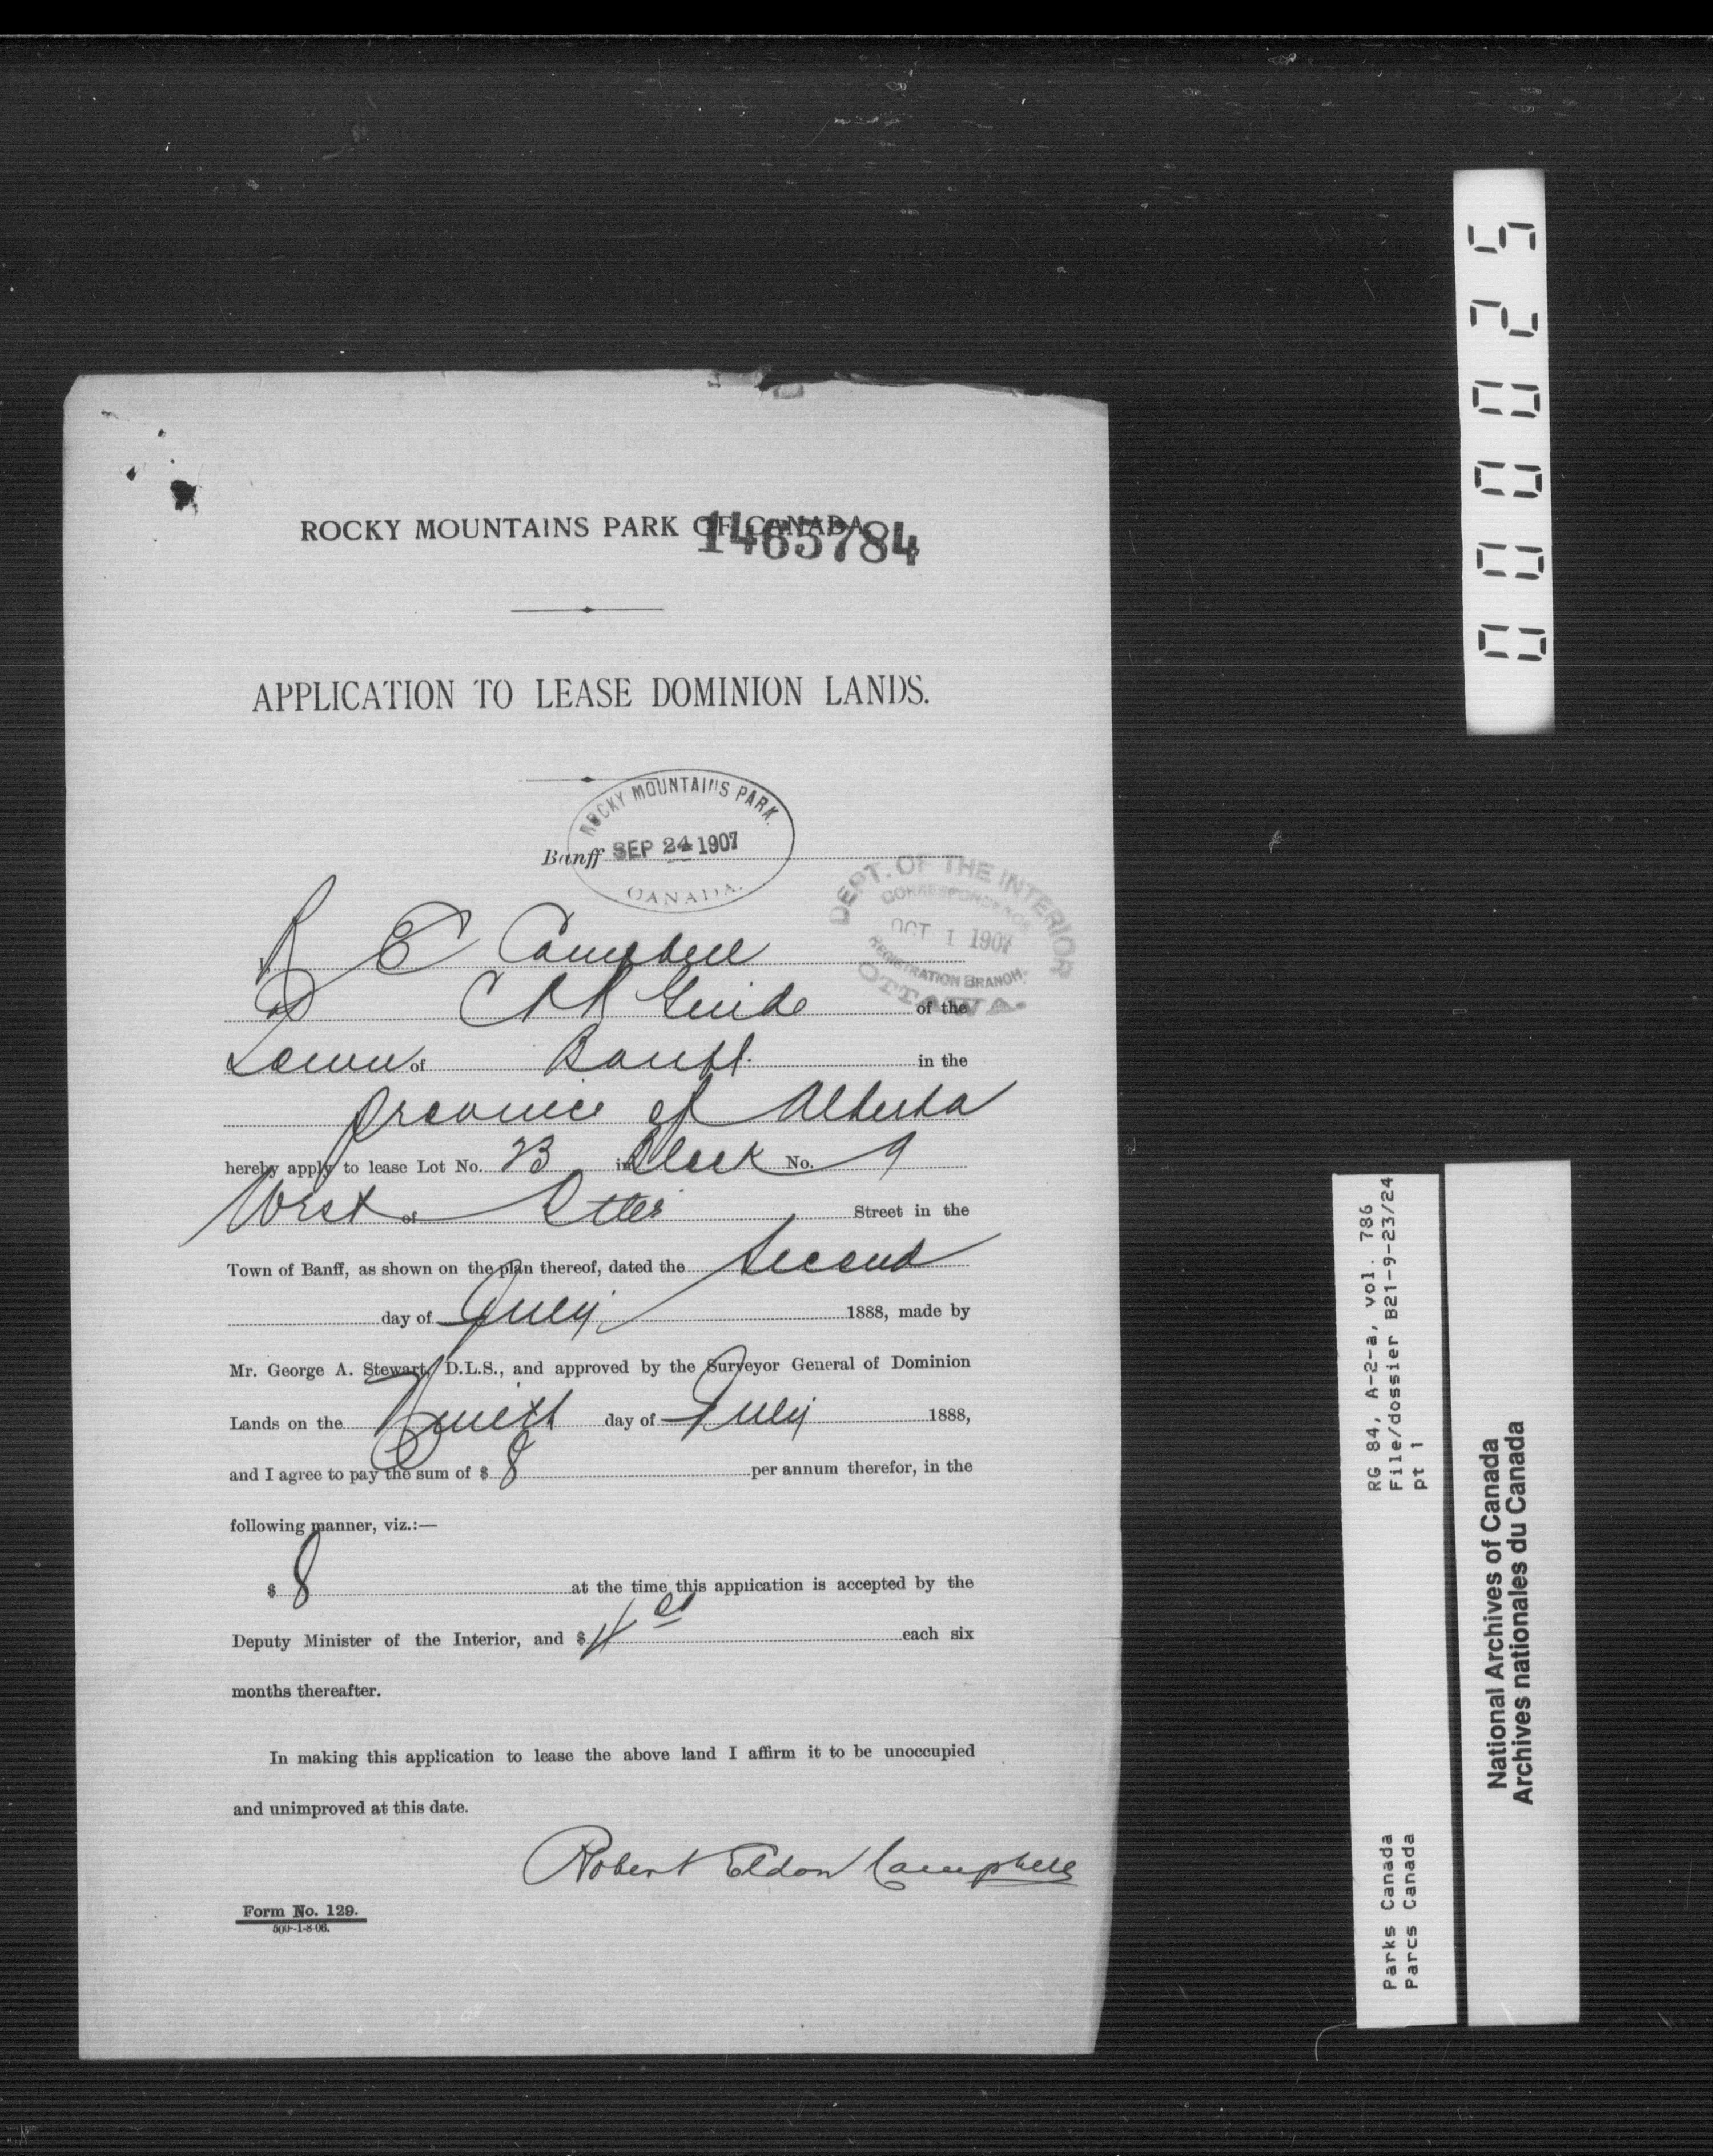 ROCKY MOUNTAINS PARK OF CANADA.
1465784
APPLICATION TO LEASE DOMINION LANDS.
ROCKY MOUNTAINS PARK.
Banff SEP 24 1907
CANADA.
DEPT. OF THE INTERIOR
CORRESPONDENCE
OCT 1 1907
REGISTRATION BRANCH.
OTTAWA.
R E Campbell
Guide of the
Town of Banff. in the
province of Alberta
hereby apply to lease Lot No. 23 in Block No. 9
West of Otter Street in the
Town of Banff, as shown on the plan thereof, dated the Second
day of July 1888, made by
Mr. George A. Stewart, D.L.S., and approved by the Surveyor General of Dominion
Lands on the day of July 1888,
and I agree to pay the sum of $ 8 per annum therefor, in the
following manner, viz.:—
$ 8 at the time this application is accepted by the
Deputy Minister of the Interior, and $ 4 each six
months thereafter.
In making this application to lease the above land I affirm it to be unoccupied
and unimproved at this date.
Robert Eldon Campbell
Form No. 129.
500-1-8-06.
000025
RG 84, A-2-a, vol. 786
File/dossier B21-9-23/24
pt 1
Parks Canada
Parcs Canada
National Archives of Canada
Archives nationales du Canada